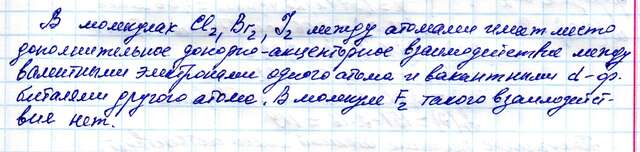 В молекулах Cl2, Br2, I2 между атомами имеет место
дополнительное донорно-акцепторное взаимодействие между
валентными электронами одного атома и вакантными d-ор-
биталями другого атома. В молекуле F2 такого взаимодейст-
вия нет.